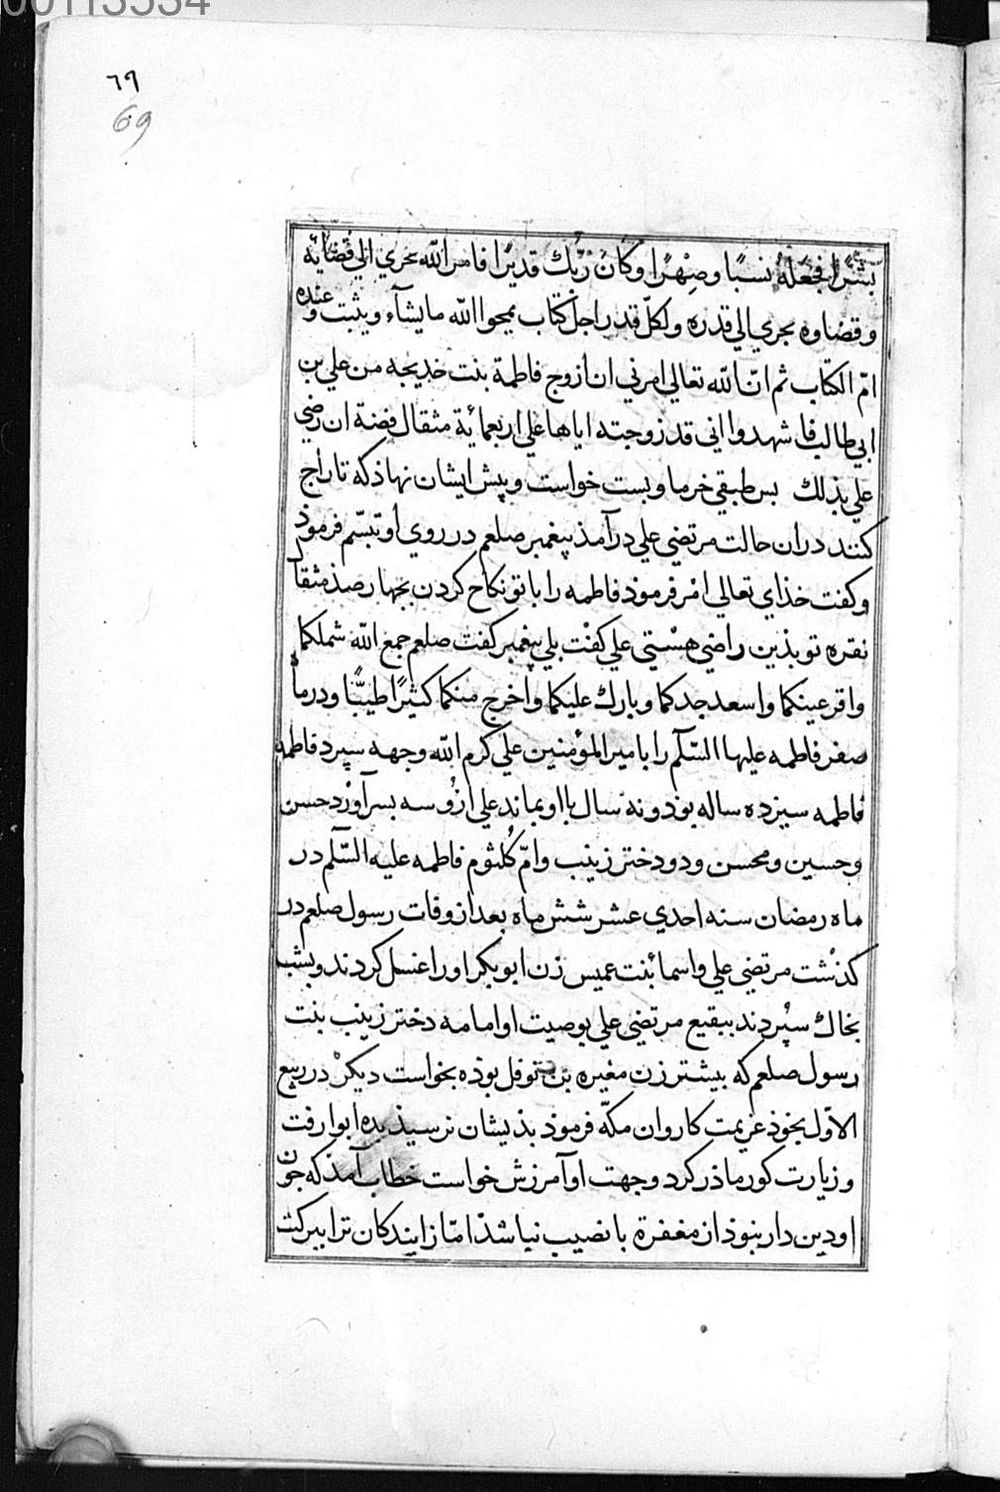 00113534
٦٩
69
بشرًا فجعله نسبًا وصهرًا وكان ربّك قديرًا فامر الله يجري الي قضايه
وقضاوه يجري الي قدره ولكلّ قدر اجل كتاب يمحوا الله ما يشآء ويثبت وعنده
امّ الكتاب ثم انّ الله تعالي امرني ان ازوج فاطمة بنت خديجه من علي بن
ابي طالب فاشهدوا اني قد زوجته اياها علي اربعمائة مثقال فضة ان رضي
علي بذلك بس طبقي خرما وبست خواست وپيش ايشان نهاذ كه تاراج
كنند دران حالت مرتضي علي درآمذ پيغمبر صلعم در روي او تبسّم فرموذ
وكفت خذاي تعالي امر فرموذ فاطمه را با تو نكاح كردن بجهارصذ مثقال
نقره تو بذين راضي هستي علي كفت بلي پيغمبر كفت صلعم جمع الله شملكما
واقر عينكما واسعد جدكما وبارك عليكما واخرج منكما كثيرًا طيبًا ودر ماه
صفر فاطمه عليها السّلم را بامير المؤمنين علي كرم الله وجهه سپرد فاطمه
فاطمه سيزده ساله بوذ ونه سال با او بماند علي ازو سه بسر آورد حسن
وحسين ومحسن ودو دختر زينب وامّ كلثوم فاطمه عليه السّلم در
ماه رمضان سنه احدي عشر شش ماه بعد از وفات رسول صلعم در
كذشت مرتضي علي واسما بنت عميس زن ابو بكر اورا غسل كردند وبشب
بخاك سپردند ببقيع مرتضي علي بوصيت او امامه دختر زينب بنت
رسول صلعم كه بيشتر زن مغيره بن نوفل بوذه بخواست ديكر در ربيع
الاوّل بخوذ عزيمت كاروان مكّه فرموذ بذيشان نرسيذ بده ابوا رفت
وزيارت كور ماذر كرد وجهت او آمرزش خواست خطاب آمذ كه جون
او دين دار نبوذ از مغفرة با نصيب نباشذ امّا زايندكان ترا ببركت